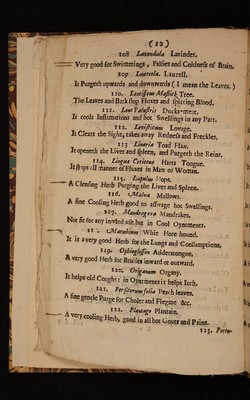 (12)
108 Lavendula Lavinder.
Very good for Swimmings, Palsies and Coldness of Brain.
109. Laureola. Laurell.
It Purgeth upwards and downwards (I mean the Leaves.)
110. Lentiscus Mastick Tree.
The Leaves and Bark stop Fluxes and spitting Blood.
111. Lens Palustris Ducks-meat.
It cools Inflamations and hot Swellings in any Part.
112. Levisticum Lovage.
It Clears the Sight, takes away Redness and Freckles.
113 Linaria Toad Flax.
It openeth the Liver and spleen, and Purgeth the Reins.
114. Lingua Cervina Harts Tongue.
It stops all manner of Fluxes in Man or Woman.
115. Lupulus Hops.
A Clensing Herb Purging the Liver and Spleen.
116. Malva Mallows.
A fine Cooling Herb good to asswage hot Swellings.
117. Mandragora Mandrakes.
Not fit for any inward use but in Cool Oyntments.
Marubium White Hore hound.
It is a very good Herb for the Lungs and Consumptions.
119. Ophioglosson Adderstongue.
A very good Herb for Bruises inward or outward.
120. Origanum Organy.
It helps old Coughs in Oyntments it helps Itch.
121. Persicorum folia Peach leaves.
A fine gentle Purge for Choler and Flegme &c.
122. Plantago Plantain.
A very cooling Herb, good in all hot Gouts and Paine.
123. Portu-